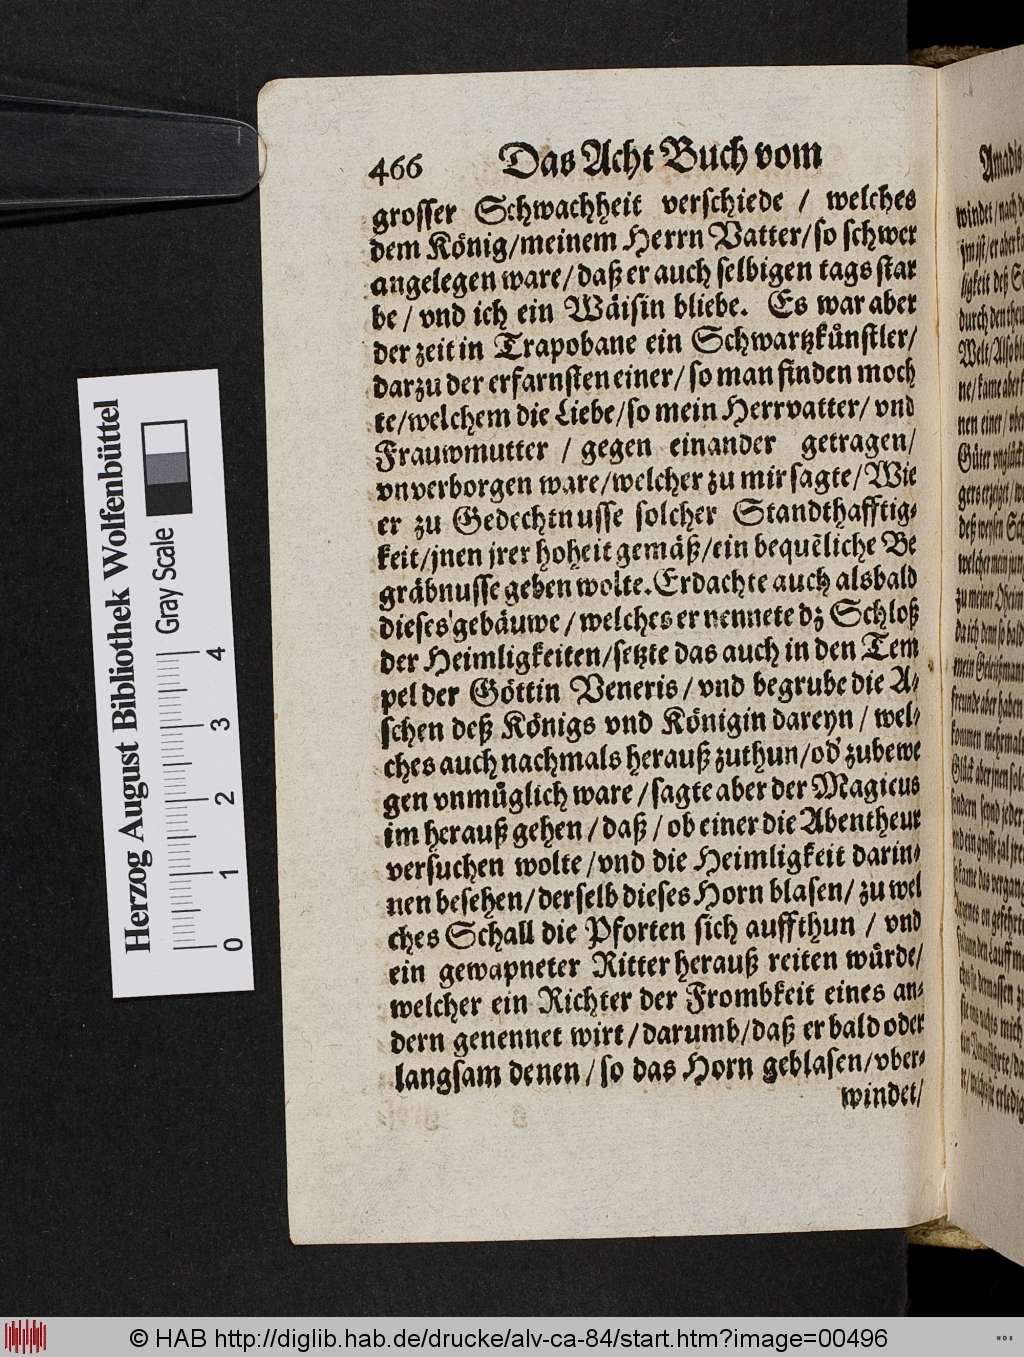 466 Das Acht Buch vom
grosser Schwachheit verschiede / welches
dem König/meinem Herrn Vatter/so schwer
angelegen ware/daß er auch selbigen tags star
be/vnd ich ein Wäisin bliebe. Es war aber
der zeit in Trapobane ein Schwartzkůnstler/
darzu der erfarnsten einer/so man finden moch
te/welchem die Liebe/so mein Herrvatter/vnd
Frauwmutter / gegen einander getragen/
vnverborgen ware/welcher zu mir sagte/Wie
er zu Gedechtnusse solcher Standthafftig-
keit/jnen jrer hoheit gemäß/ein bequẽliche Be
gräbnusse geben wolte. Erdachte auch alsbald
dieses gebäuwe/welches er nennete dz Schloß
der Heimligkeiten/setzte das auch in den Tem
pel der Göttin Veneris/vnd begrube die A-
schen deß Königs vnd Königin dareyn/wel-
ches auch nachmals herauß zuthun/od zubewe
gen vnmůglich ware/sagte aber der Magicus
im herauß gehen/daß/ob einer die Abentheur
versuchen wolte/vnd die Heimligkeit darin-
nen besehen/derselb dieses Horn blasen/zu wel
ches Schall die Pforten sich auffthun / vnd
ein gewapneter Ritter herauß reiten wůrde/
welcher ein Richter der Frombkeit eines an-
dern genennet wirt/darumb/daß er bald oder
langsam denen/so das Horn geblasen/vber-
windet/
Amadis
windet/nach
Herzog August Bibliothek Wolfenbüttel
Gray Scale
0 1 2 3 4
© HAB http://diglib.hab.de/drucke/alv-ca-84/start.htm?image=00496